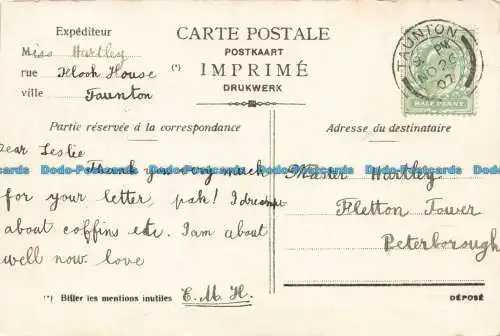 Expéditeur
Miss Hartley
rue Flook House
ville Taunton
(*)
CARTE POSTALE
POSTKAART
IMPRIMÉ
DRUKWERX
TAUNTON
PM
NO 26
07
HALF PENNY
Partie réservée à la correspondance
Dear Leslie
Thank you very much
for your letter, pah! I dreampt
about coffins etc. I am about
well now. love
E. M. H.
(*) Biffer les mentions inutiles
Adresse du destinataire
Master Hartley
Fletton Tower
Peterborough
DÉPOSÉ
Dodo-Postcards Dodo-Postcards Dodo-Postcards Dodo-Postcards Dodo-Postcards